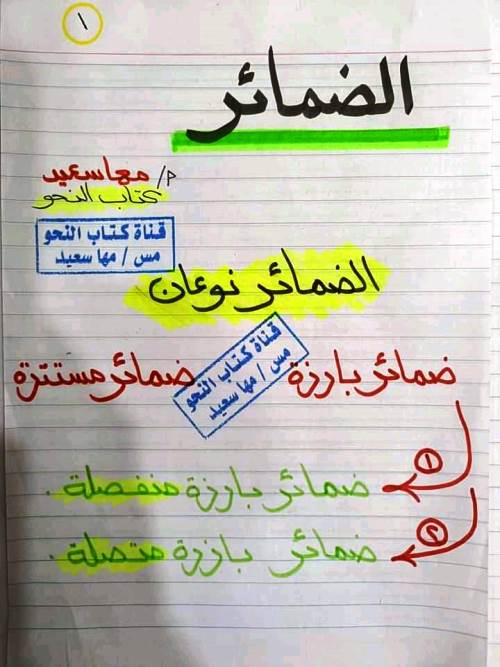 ١
الضمائر
م/ مها سعيد
كتاب النحو
قناة كتاب النحو
مس / مها سعيد
الضمائر نوعان
ضمائر بارزة ضمائر مستترة
قناة كتاب النحو
مس / مها سعيد
١ ضمائر بارزة منفصلة .
٢ ضمائر بارزة متصلة .